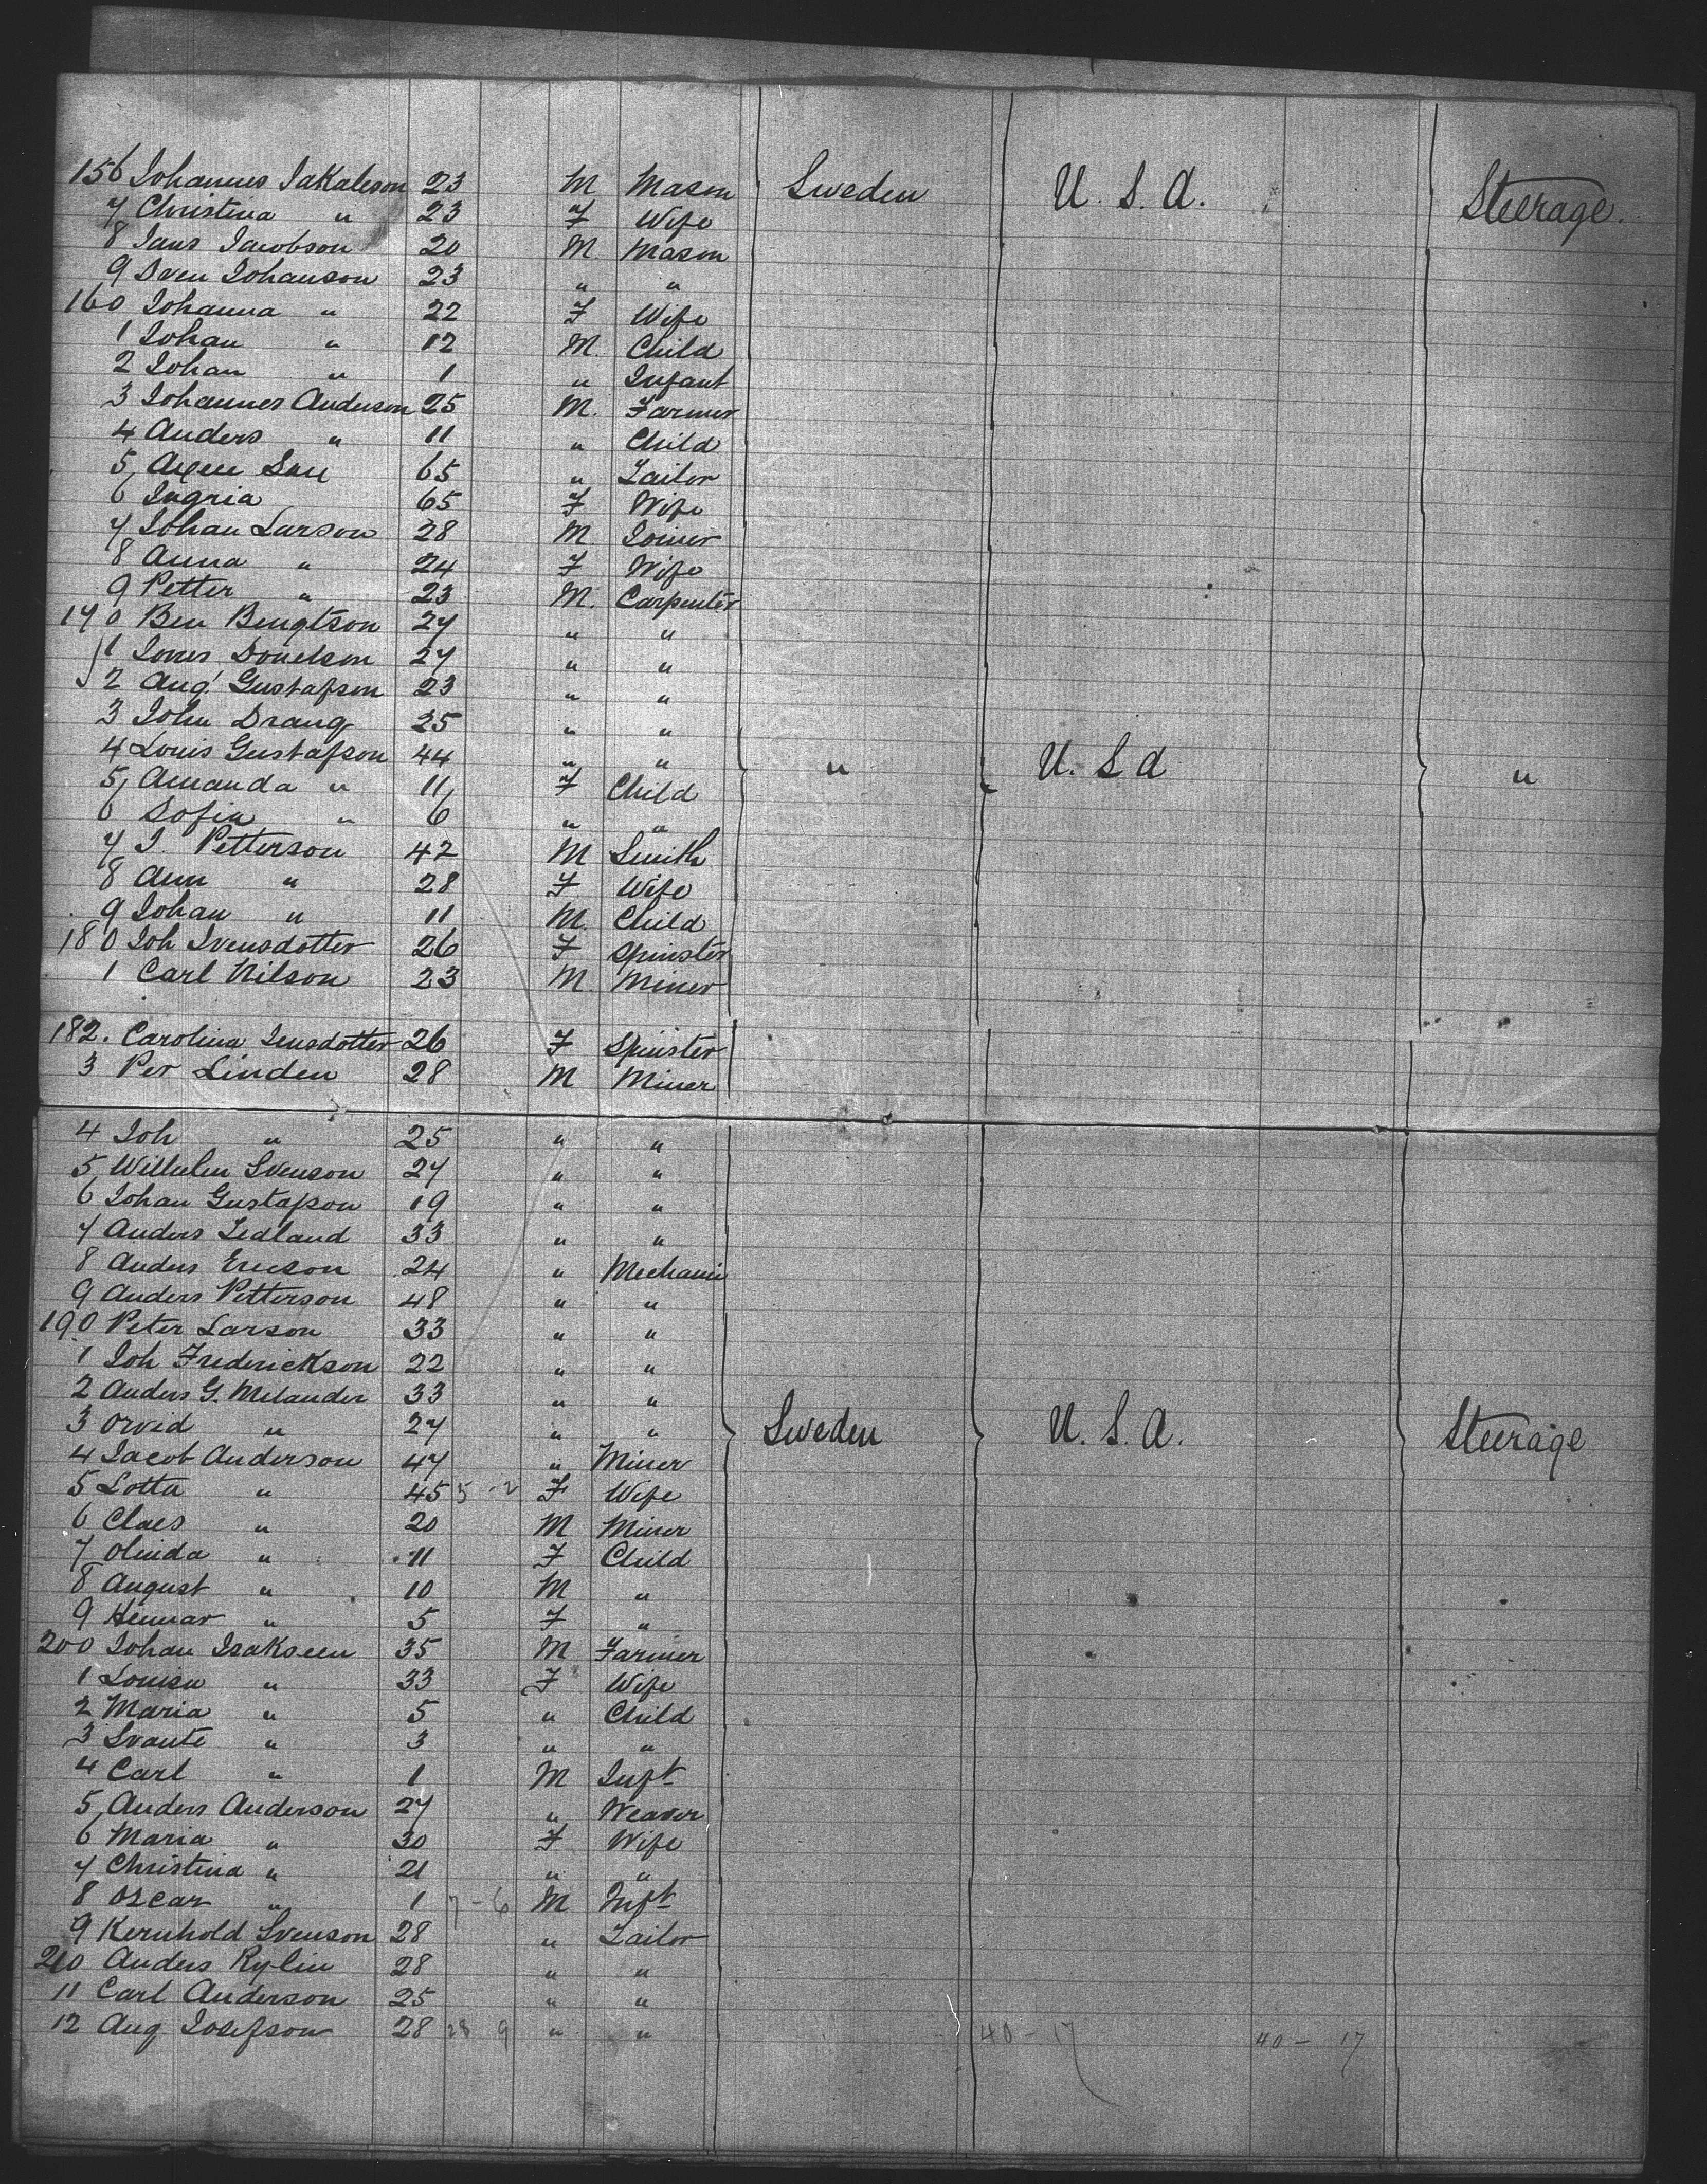 156 Johannes Jakaleson 23 M Mason Sweden U. S. A. Steerage.
7 Christina " 23 F Wife
8 Jans Jacobson 20 M Mason
9 Sven Johanson 23 " "
160 Johanna " 22 F Wife
1 Johan " 12 M. Child
2 Johan " 1 " Infant
3 Johannes Anderson 25 M. Farmer
4 Anders " 11 " Child
5 Axen 65 " Tailor
6 Ingria 65 F Wife
7 Johan Larson 28 M Joiner
8 Anna " 24 F Wife
9 Petter " 23 M. Carpenter
170 Ben Bengtson 27 " "
1 Jones Donelson 27 " "
2 Aug. Gustafson 23 " "
3 John Drang 25 " "
4 Louis Gustafson 44 " " " U. S A "
5 Amanda " 11 F Child
6 Sofia " 6 " "
7 J. Petterson 42 M Smith
8 Ann " 28 F Wife
9 Johan " 11 M. Child
180 Joh Svensdotter 26 F Spinster
1 Carl Nilson 23 M. Miner
182. Carolina Jensdotter 26 F Spinster
3 Per Linden 28 M Miner
4 Joh " 25 " "
5 Wilhelm Svenson 27 " "
6 Johan Gustafson 19 " "
7 Anders Tedland 33 " "
8 Anders Ericson 24 " Mechanic
9 Anders Petterson 48 " "
190 Peter Larson 33 " "
1 Joh Frederickson 22 " "
2 Anders G. Melander 33 " "
3 Orvid " 27 " " Sweden U. S. A. Steerage
4 Jacob Anderson 47 " Miner
5 Lotta " 45 5 - 2 F Wife
6 Claes " 20 M Miner
7 Olinda " 11 F Child
8 August " 10 M "
9 Hemar " 5 F "
200 Johan Isakseen 35 M Farmer
1 Louisa " 33 F Wife
2 Maria " 5 " Child
3 Svante " 3 " "
4 Carl " 1 M Inft
5 Anders Anderson 27 " Weaver
6 Maria " 30 F Wife
7 Christina " 21 " "
8 Oscar " 1 7 - 6 M Inft
9 Kernhold Svenson 28 " Tailor
210 Anders Rylin 28 " "
11 Carl Anderson 25 " "
12 Aug Josefson 28 28 9 " " 40 - 17 40 - 17